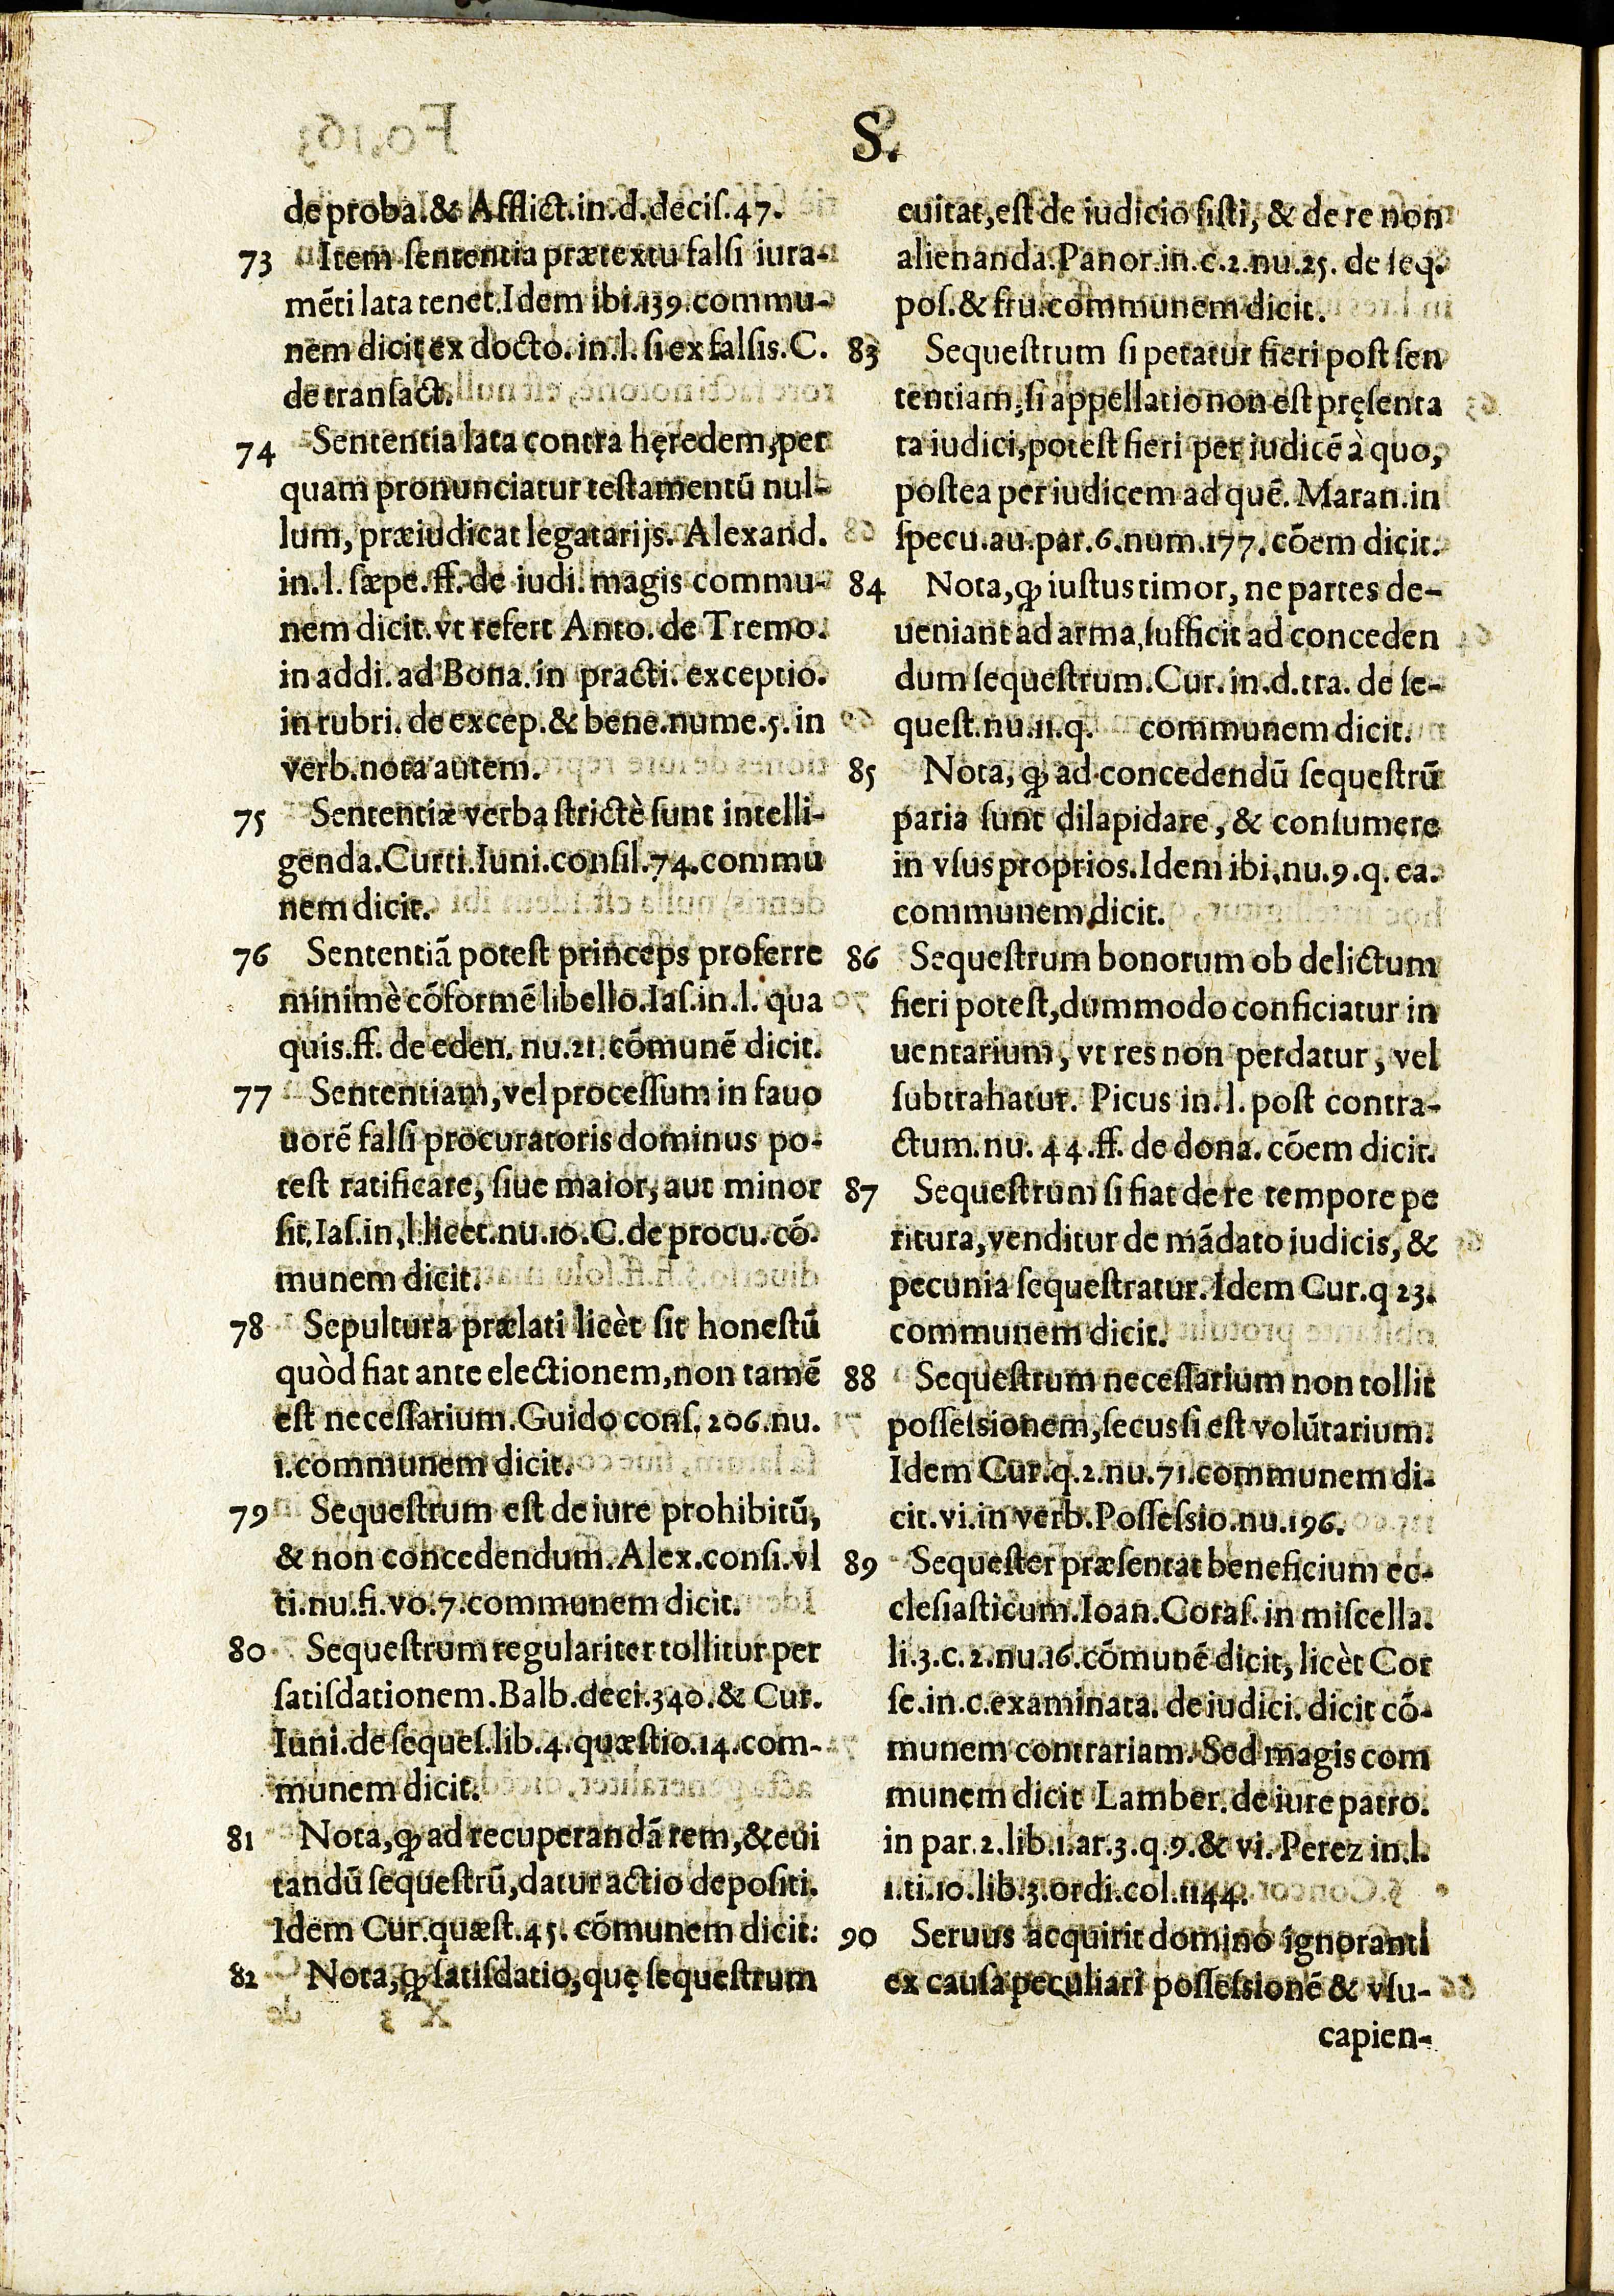 S.
de proba.& Afflict.in.d.decis.47.
73 Item sententia prætextu falsi iura-
mēti lata tenet.Idem ibi.139.commu-
nem dicit ex docto. in.l. si ex falsis. C.
de transact.
74 Sententia lata contra hęredem, per
quam pronunciatur testamentū nul-
lum, præiudicat legatarijs. Alexand.
in. l. sæpe. ff. de iudi. magis commu-
nem dicit. vt refert Anto. de Tremo.
in addi. ad Bona. in practi. exceptio.
in rubri. de excep.& bene.nume.5. in
verb.nota autem.
75 Sententiæ verba strictè sunt intelli-
genda.Curti.Iuni.consil.74.commu
nem dicit.
76 Sententiā potest princeps proferre
minimè cōformē libello.Ias.in.l. qua
quis.ff. de eden. nu.21. cōmunē dicit.
77 Sententiam, vel processum in fauo
uorē falsi procuratoris dominus po-
test ratificare, siue maior, aut minor
sit. Ias.in,l.licet.nu.10.C.de procu.cō-
munem dicit.
78 Sepultura prælati licèt sit honestū
quòd fiat ante electionem, non tamē
est necessarium.Guido cons. 206.nu.
1.communem dicit.
79 Sequestrum est de iure prohibitū,
& non concedendum. Alex.consi.vl
ti.nu.fi.vo.7.communem dicit.
80 Sequestrum regulariter tollitur per
satisdationem.Balb.deci.340.& Cur.
Iuni.de seques.lib.4.quæstio.14.com-
munem dicit.
81 Nota, ꝙ ad recuperandā rem, & eui
tandū sequestrū, datur actio depositi.
Idem Cur.quæst.45. cōmunem dicit.
82 Nota, ꝙ satisdatio, quę sequestrum
euitat, est de iudicio sisti, & de re non
alienanda.Panor.in.c.2.nu.25. de seq.
pos.& fru.communem dicit.
83 Sequestrum si petatur fieri post sen
tentiam, si appellatio non est pręsenta
ta iudici, potest fieri per iudicē à quo,
postea per iudicem ad quē. Maran.in
specu.au.par.6.num.177.cōem dicit.
84 Nota, ꝙ iustus timor, ne partes de-
ueniant ad arma, sufficit ad conceden
dum sequestrum.Cur. in.d.tra. de se-
quest.nu.11.q. communem dicit.
85 Nota, ꝙ ad concedendū sequestrū
paria sunt dilapidare, & consumere
in vsus proprios.Idem ibi, nu.9.q. ea.
communem dicit.
86 Sequestrum bonorum ob delictum
fieri potest, dummodo conficiatur in
uentarium, vt res non perdatur, vel
subtrahatur. Picus in. l. post contra-
ctum.nu. 44.ff. de dona. cōem dicit.
87 Sequestrum si fiat de re tempore pe
ritura, venditur de mādato iudicis, &
pecunia sequestratur. Idem Cur.q 23.
communem dicit.
88 Sequestrum necessarium non tollit
possessionem, secus si est volūtarium.
Idem Cur.q.2.nu.71.communem di-
cit.vi.in verb.Possessio.nu.196.
89 Sequester præsentat beneficium ec-
clesiasticum.Ioan.Coras.in miscella.
li.3.c.2.nu.16.cōmunē dicit, licèt Cor
se.in.c.examinata. de iudici. dicit cō-
munem contrariam. Sed magis com
munem dicit Lamber. de iure patro.
in par.2.lib.1.ar.3.q.9.& vi. Perez in.l.
1.ti.10.lib.3.ordi.col.1144.
90 Seruus acquirit domino ignoranti
ex causa peculiari possessionē & vsu-
capien-